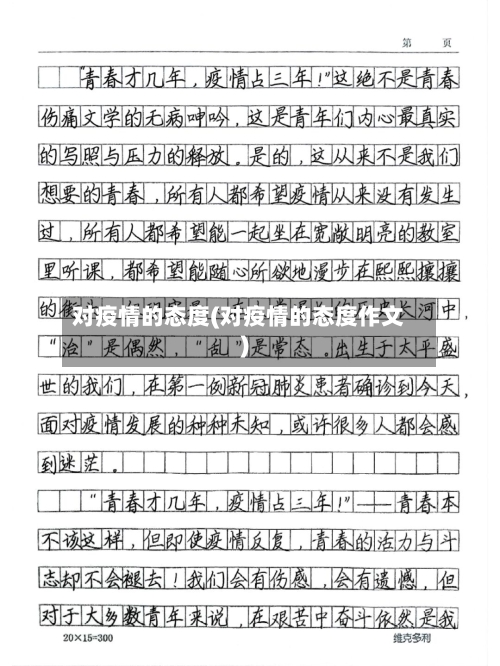 第 页
"青春才几年，疫情占三年！"这绝不是青春
伤痛文学的无病呻吟，这是青年们内心最真实
的写照与压力的释放。是的，这从来不是我们
想要的青春，所有人都希望疫情从来没有发生
过，所有人都希望能一起坐在宽敞明亮的教室
里听课，都希望能随心所欲地漫步在熙熙攘攘
的 长河中，
对疫情的态度(对疫情的态度作文
)
"治"是偶然，"乱"是常态。出生于太平盛
世的我们，在第一例新冠肺炎患者确诊到今天，
面对疫情发展的种种未知，或许很多人都会感
到迷茫。
"青春才几年，疫情占三年！"——青春本
不该这样，但即使疫情反复，青春的活力与斗
志却不会褪去！我们会有伤感，会有遗憾，但
对于大多数青年来说，在艰苦中奋斗依然是我
20×15=300 维克多利